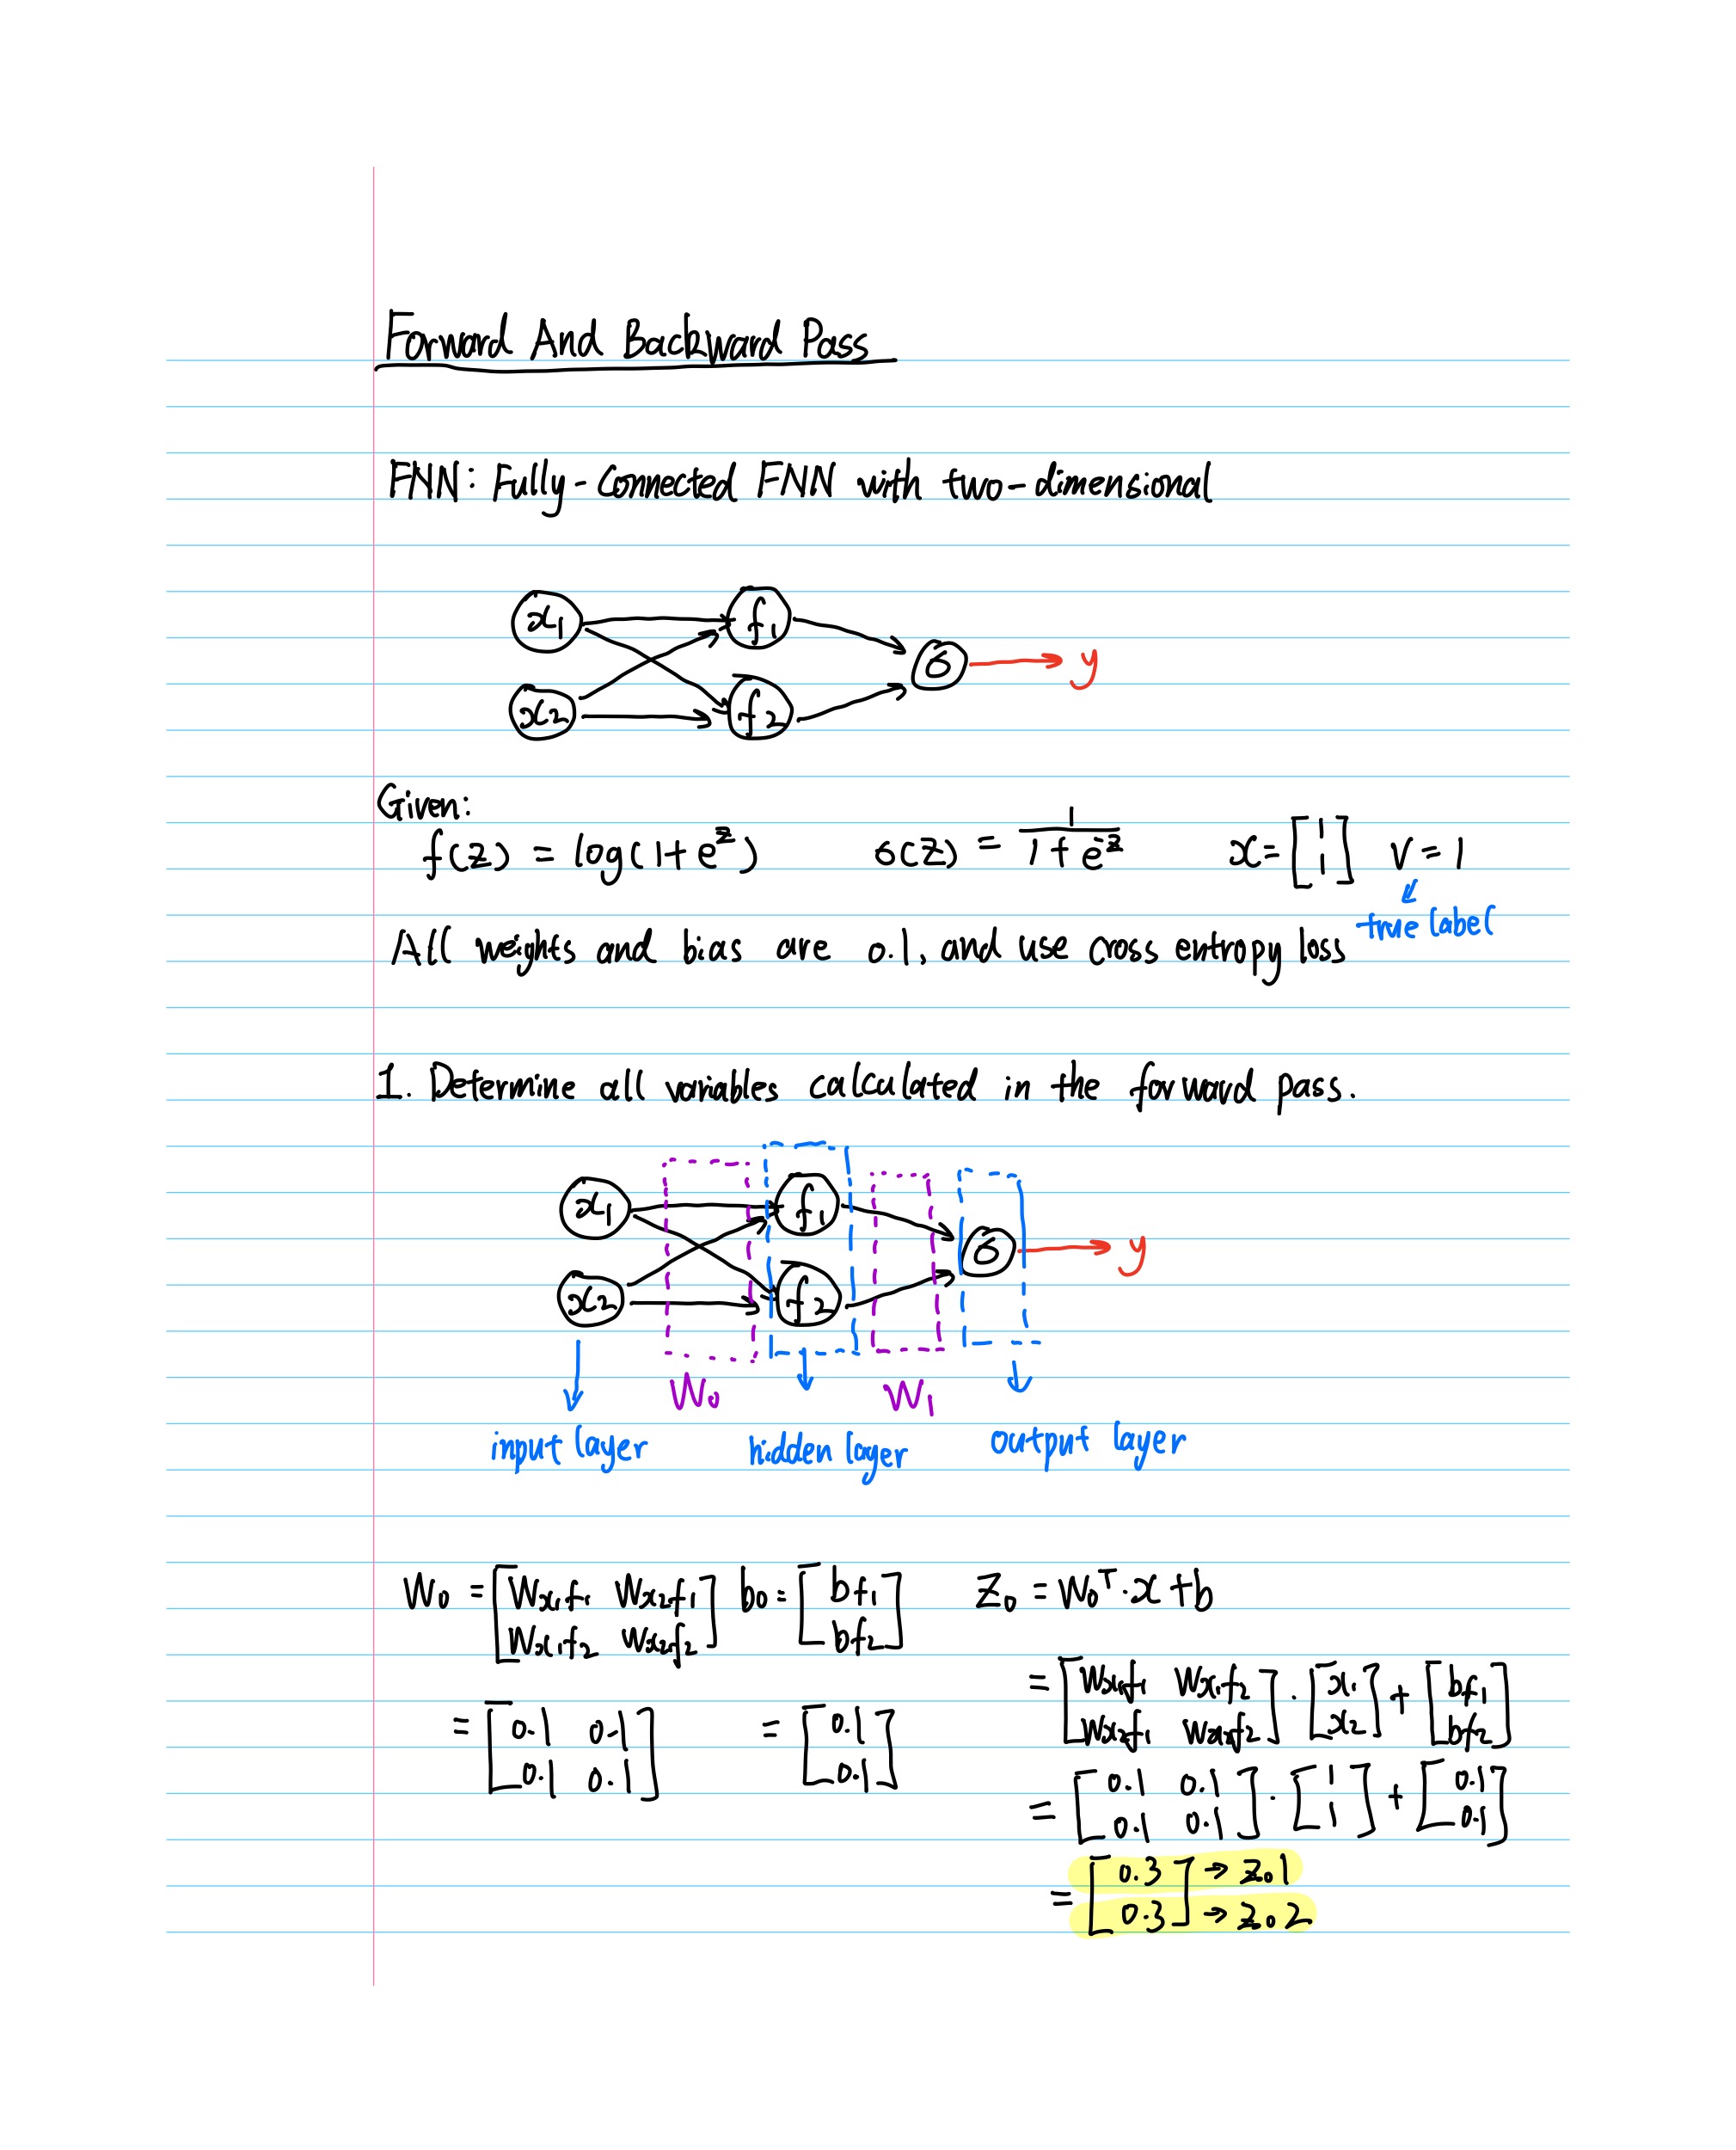 Forward And Backward Pass
FNN: Fully-Connected FNN with two-dimensional
x₁ f₁
σ → y
x₂ f₂
Given:
f(z) = log(1+e^z) σ(z) = 1/(1+e^-z) x = [1 1] v = 1
true label
All weights and bias are 0.1, and use cross entropy loss
1. Determine all variables calculated in the forward pass.
x₁ f₁
σ → y
x₂ f₂
W₀ W₁
input layer hidden layer output layer
W₀ = [Wx₁f₁ Wx₂f₁ b₀ = [bf₁ Z₀ = W₀ᵀ·x+b
Wx₁f₂ Wx₂f₂] bf₂]
= [Wx₁f₁ Wx₁f₂ · [x₁ + [bf₁
Wx₂f₁ Wx₂f₂] x₂] bf₂]
= [0.1 0.1 = [0.1
0.1 0.1] 0.1]
= [0.1 0.1 · [1 + [0.1
0.1 0.1] 1] 0.1]
= [0.3 → Z₀1
0.3] → Z₀2